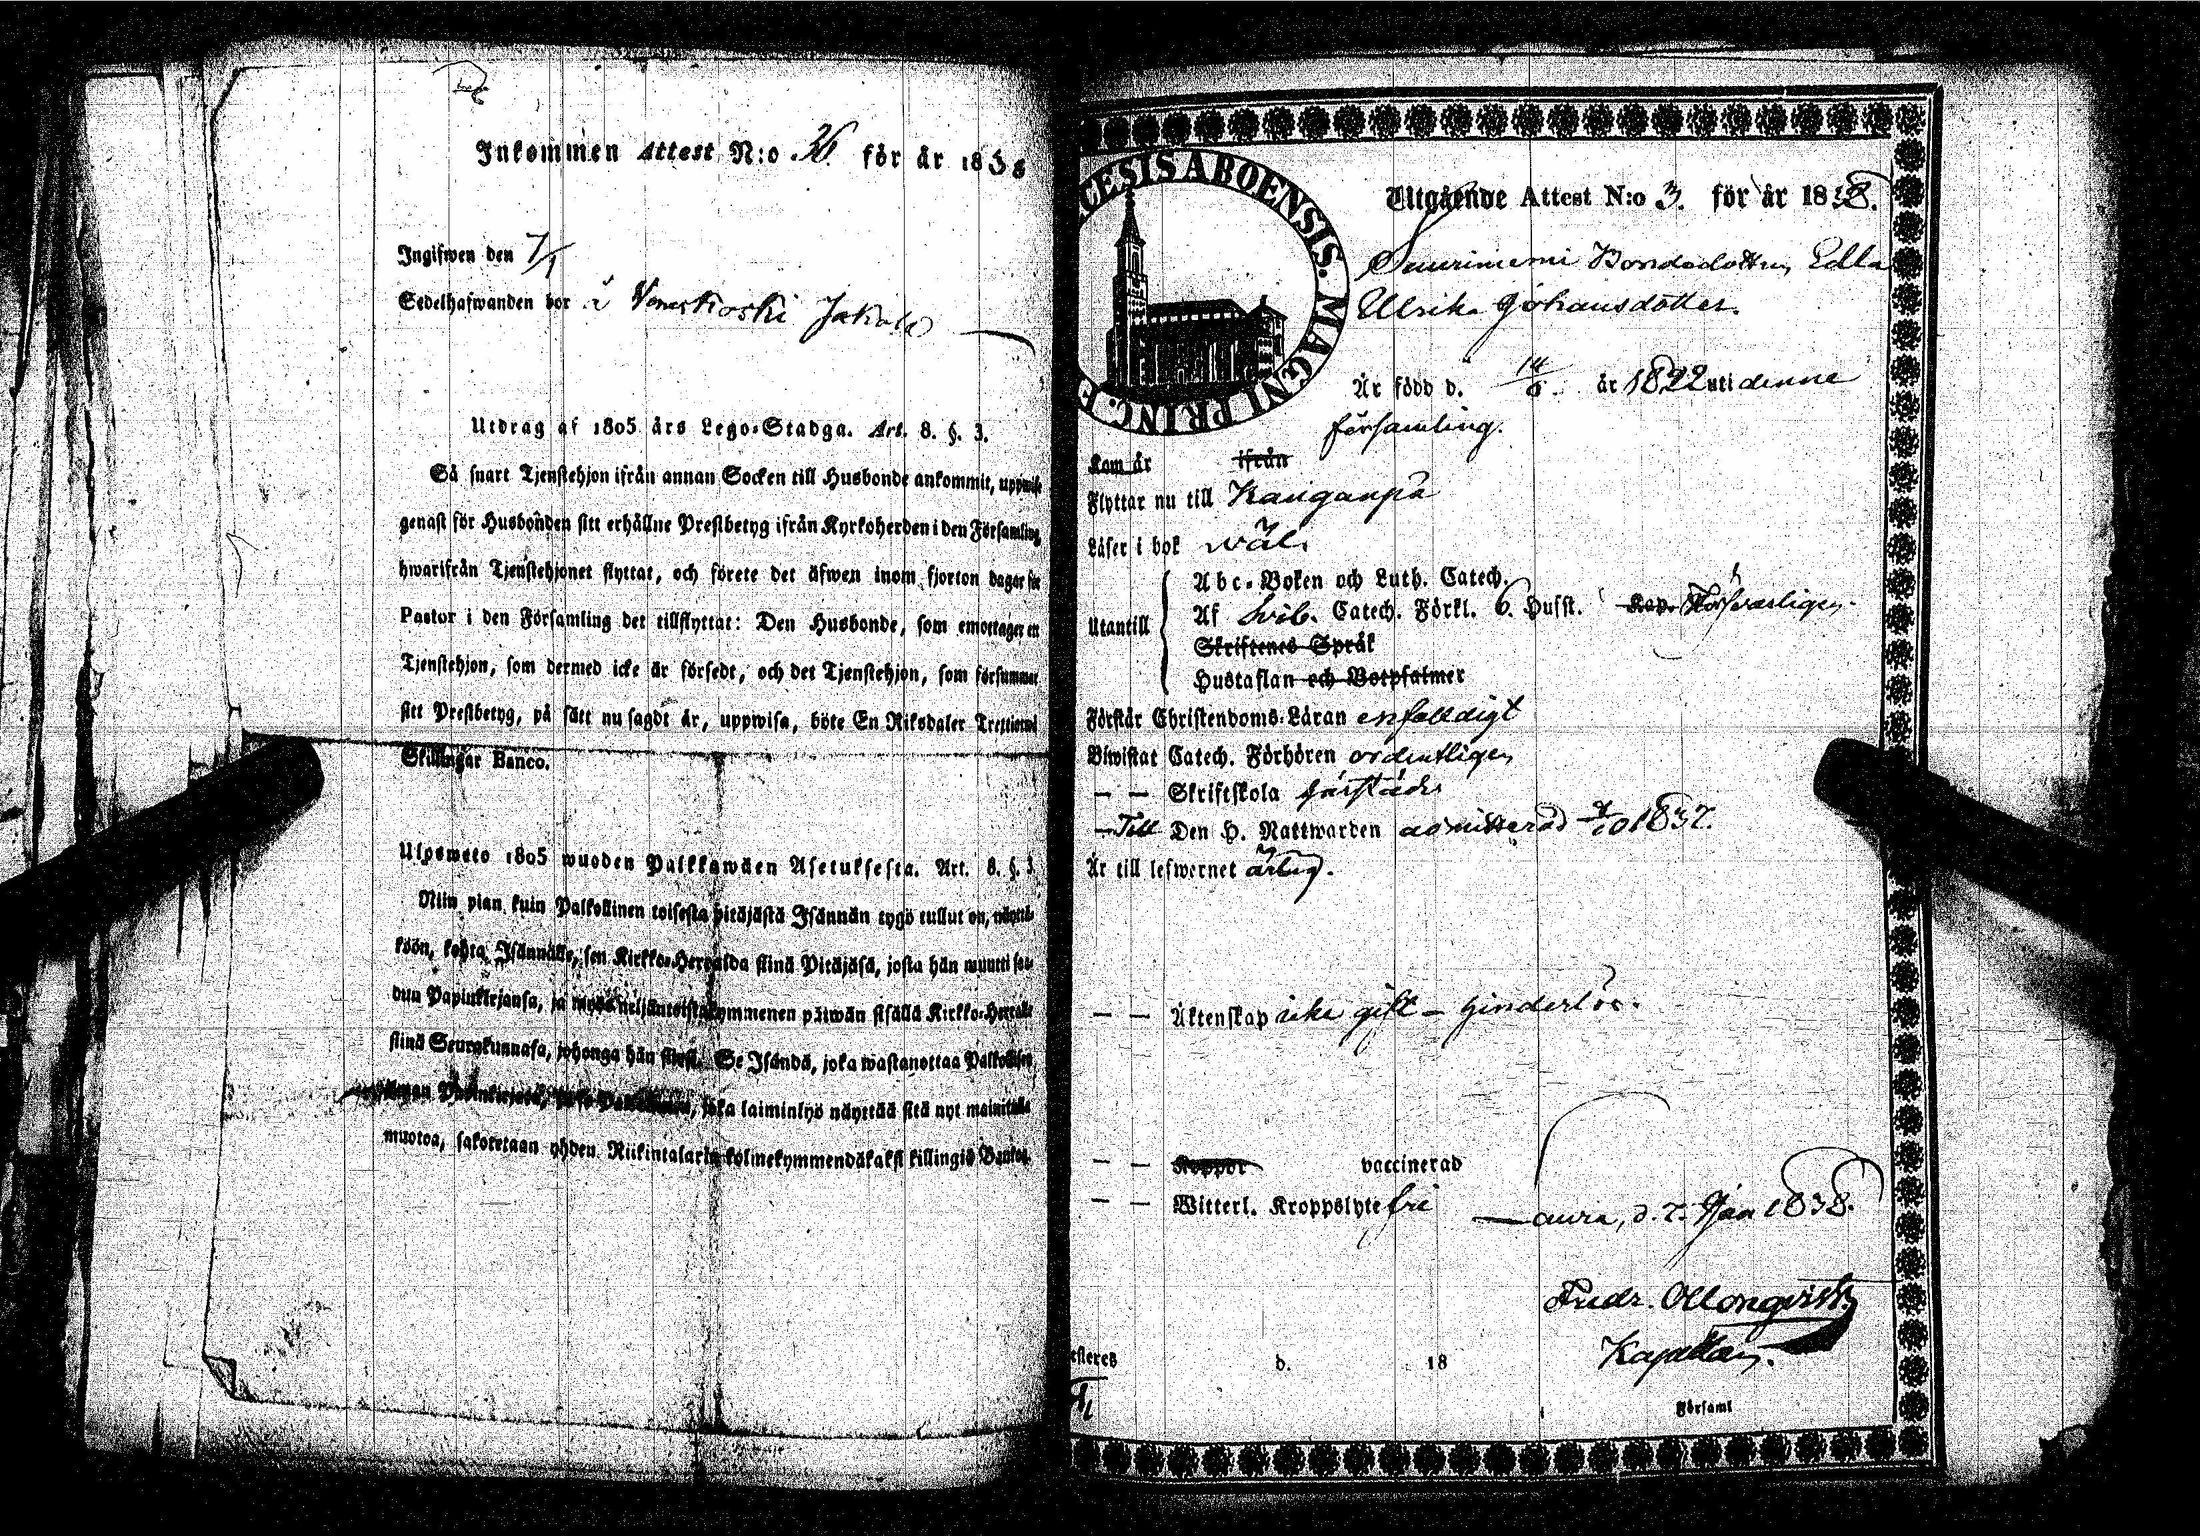 Inkommen Attest N:o 36. för år 1838
Ingifwen den 7/1
Sedelhafwanden bor i
Utdrag af 1805 års Lego-Stadga. Art. 8. §. 3.
Så snart Tjenstehjon ifrån annan Socken till Husbonde ankommit, uppwise
genast för Husbonden sitt erhållne Prestbetyg ifrån Kyrkoherden i den Församling
hwarifrån Tjenstehjonet flyttat, och förete det äfwen inom fjorton dagar för
Pastor i den Församling det tillflyttat: Den Husbonde, som emottager ett
Tjenstehjon, som dermed icke är försedt, och det Tjenstehjon, som försummar
sitt Prestbetyg, på sätt nu sagdt är, uppwisa, böte En Riksdaler Trettiotwå
Skillingar Banco.
Ulosweto 1805 wuoden Palkkawäen Asetuksesta. Art. 8. §. 3.
Niin pian kuin Palkollinen toisesta pitäjästä Isännän tygö tullut on, näyttä-
köön, kohta Isännälle, sen Kirkko-Herralda siinä Pitäjäsä, josta hän muutti saa-
dun Papinkirjansa, ja myös neljäntoistakymmenen päiwän sisällä Kirkko-Herralle
siinä Seurakunnasa, johonga hän Se Isändä, joka wastanottaa Palkollisen
ilman Papinkirjatta, joka laiminlyö näyttää sitä nyt mainitulla
muotoa, sakotetaan yhden Riikintalarin kolmekymmendäkaksi killingiä Bankos.
DIOECESIS ABOENSIS. MAGNI PRINC. F
Utgående Attest N:o 3. för år 1838.
Suurimemi Bondedotter, Edla
Ulrika Johansdotter.
Är född d. 14/6. år 1822 uti denne
församling.
Kom år ifrån
Flyttar nu till Kangaupä
Läser i bok wäl.
Abc-Boken och Luth. Catech.
Utantill Af Svib. Catech. Förkl. 6. Hufst. Kap. Försvarligen.
Skriftenes Språk
Hustaflan och Botpsalmer
Förstår Christendoms-Läran enfaldigt
Biwistat Catech. Förhören ordentligen
— — Skriftskola härstädes
— Till Den H. Nattwarden admitterad 8/10 1837.
Är till lefwernet ärlig.
— — Äktenskap icke gift – hinderlös.
— — Koppor vaccinerad
— — Witterl. Kroppslyte fri
Laura, d. 7. Jan 1838.
Fredr. Ollonqvist
Kapellan.
d. 18
Församl